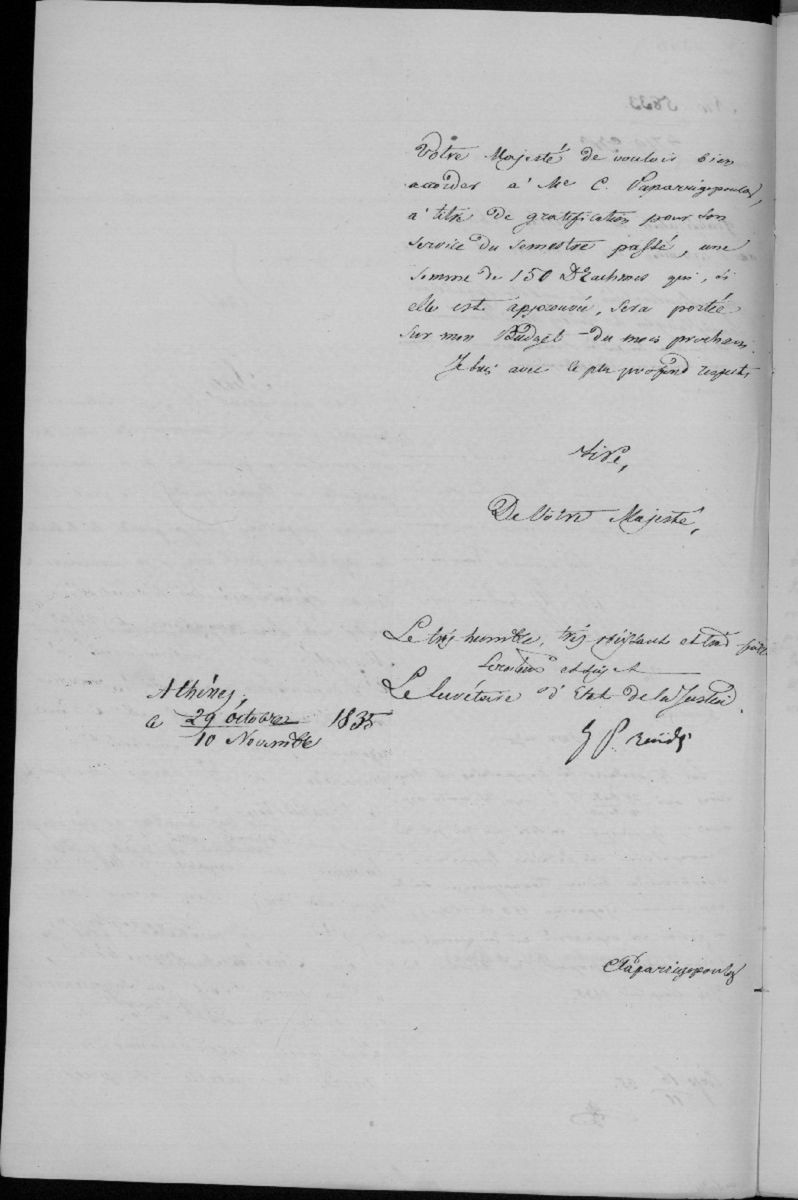 Votre Majesté de vouloir bien
accorder à Mr C. Paparrigopoulos,
à titre de gratification pour son
service du semestre passé, une
somme de 150 Drachmes qui, si
elle est approuvée, sera portée
sur mon Budget du mois prochain.
Je suis avec le plus profond respect,
Sire,
De Votre Majesté,
Le très humble, très obéissant et très fidèle
serviteur et sujet
Le Secrétaire d'Etat de la Justice
Athènes,
le 29 Octobre / 10 Novembre 1835
C Paparrigopoulos